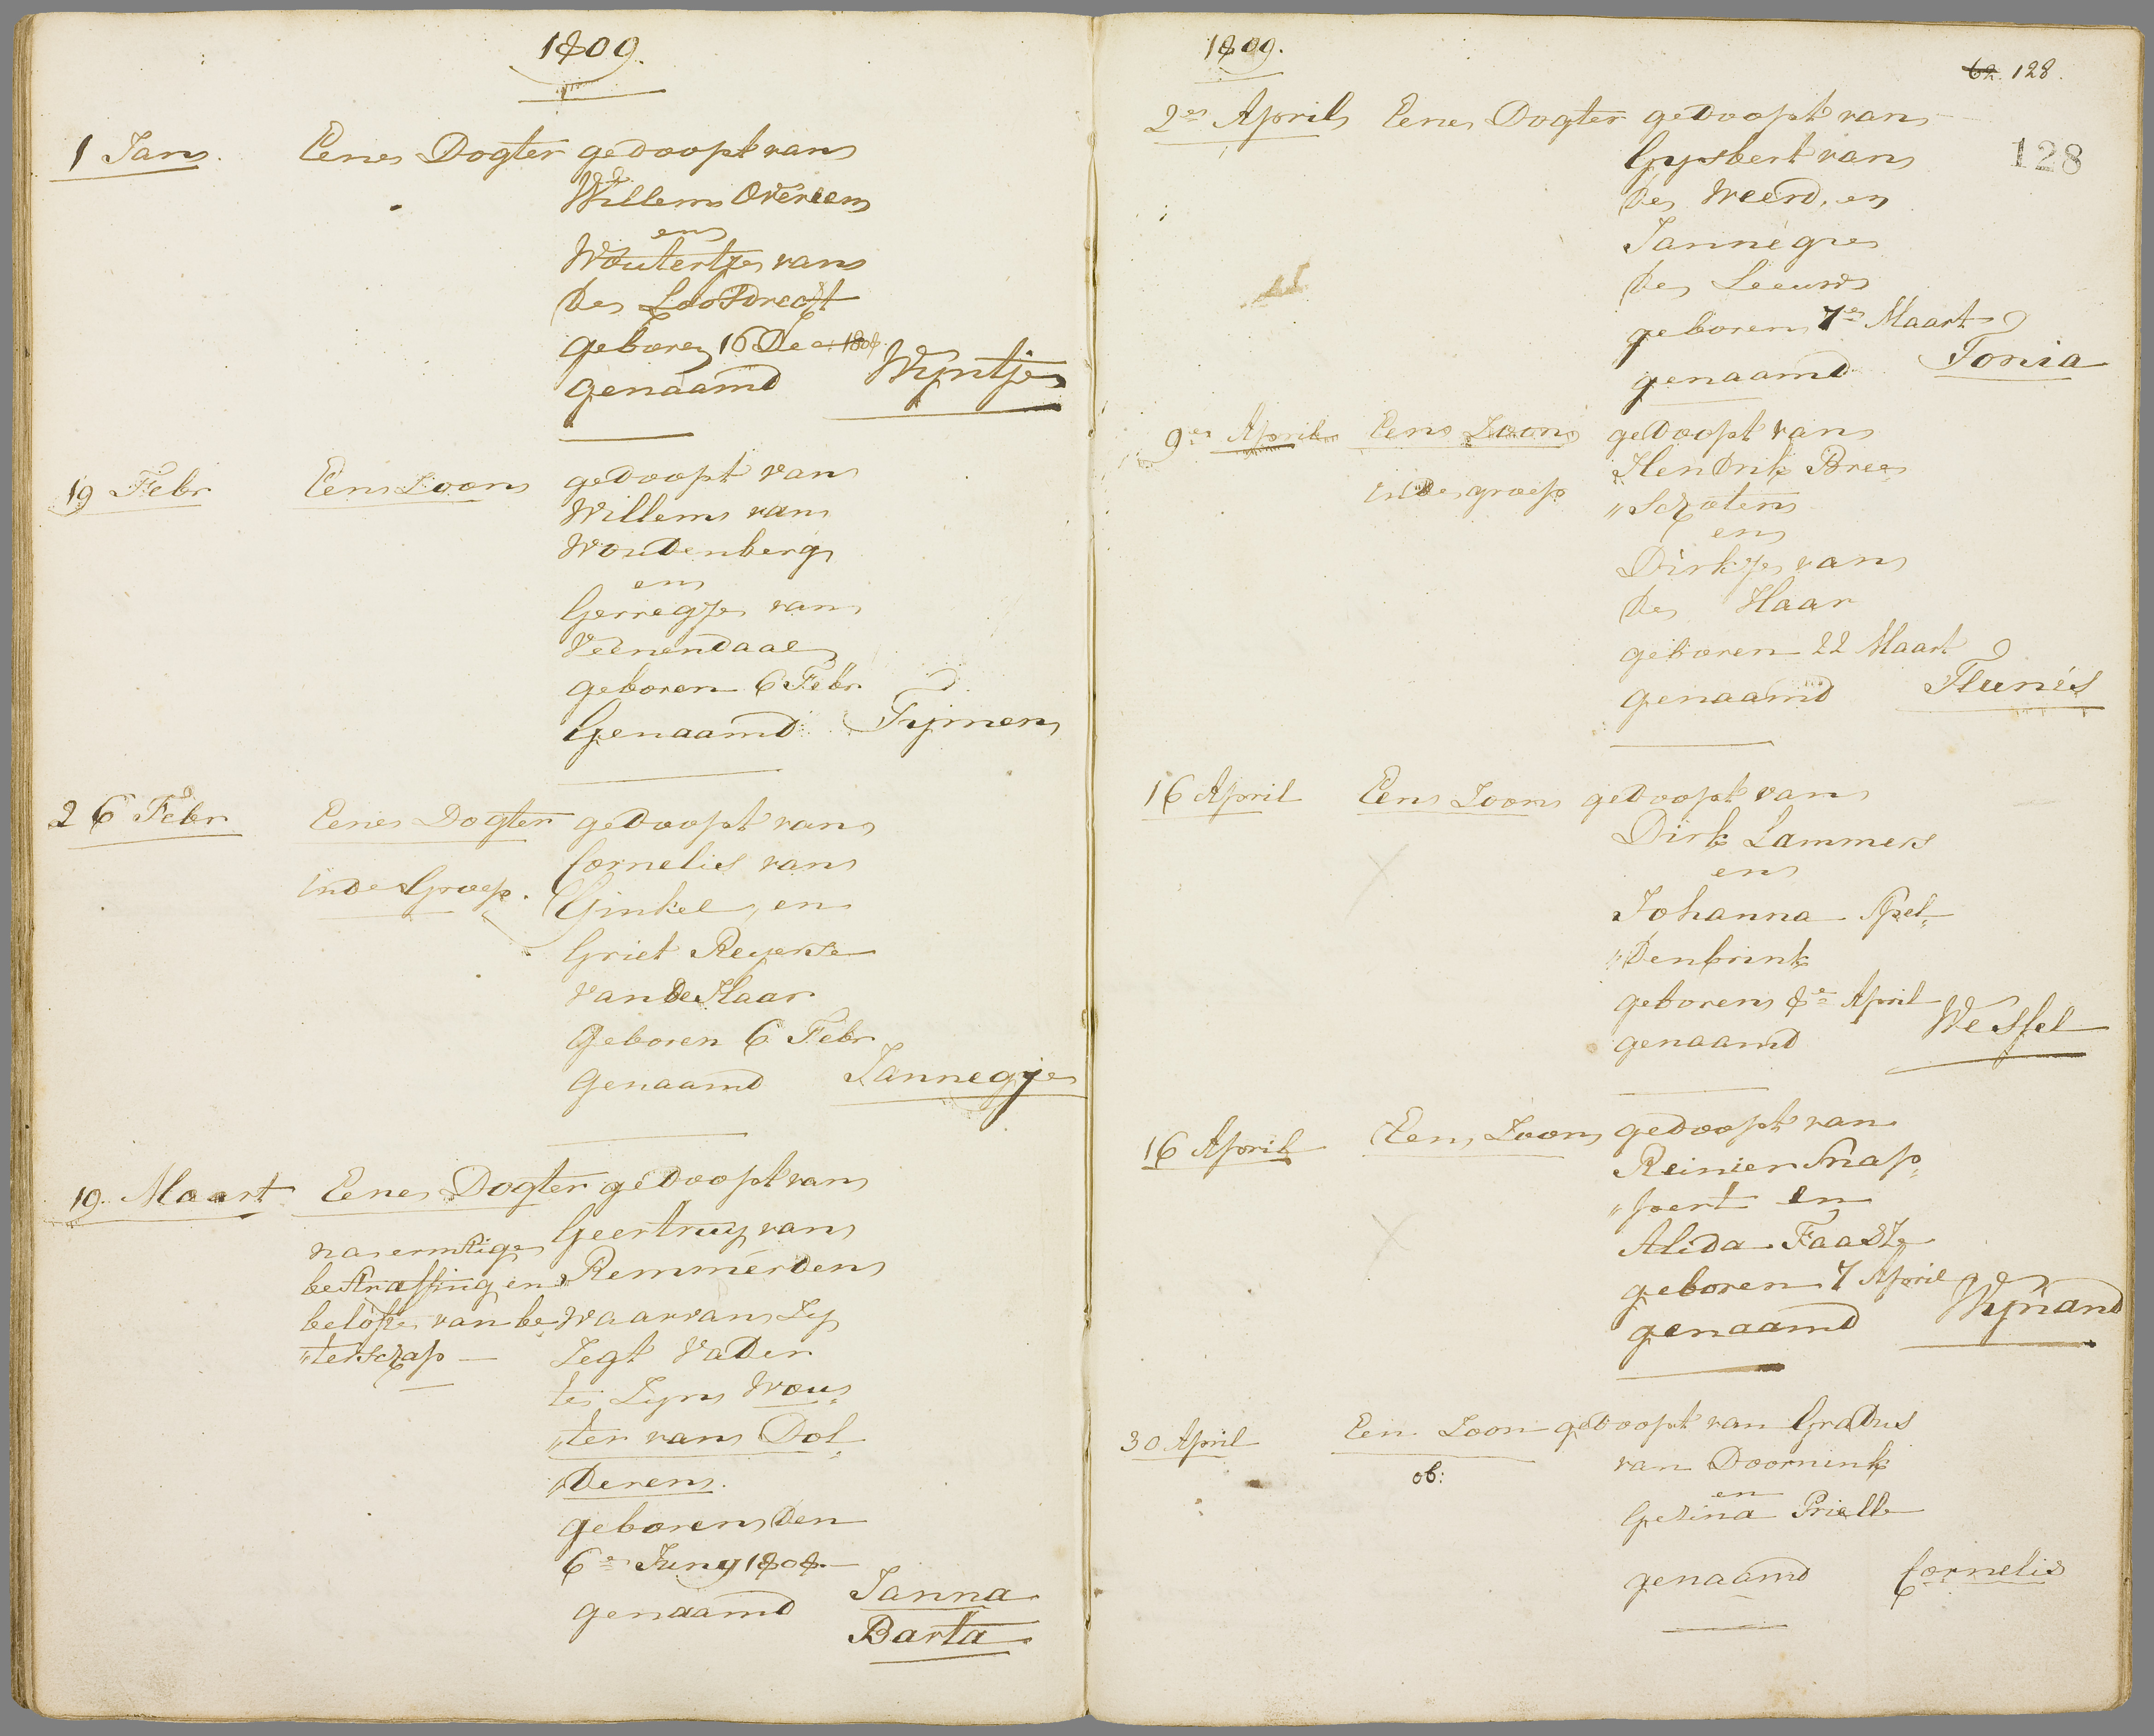 1809.
1 Jan. Eene Dogter gedoopt van
Willem Overeem
en
Woutertje van
de Loosdrecht
geboren 16 Dec. 1808.
genaamd Wyntje
19 Febr Een Zoon gedoopt van
Willem van
Woudenberg
en
Gerregje van
Veenendaal
geboren 6 Febr.
Genaamd Tymen
26 Febr Eene Dogter gedoopt van
Cornelis van
in de Groep. Ginkel, en
Griet Reyerse
van de Haar
Geboren 6 Febr.
Genaamd Jannegje
19. Maart Eene Dogter gedoopt van
na ernstige Geertruy van
bestraffing en Remmerden
belofte van be waarvan Zy
"terschap — Zegt Vader
te Zyn Wou„
"ter van Dol„
"deren.
geboren den
6e Juny 1808.
genaamd Janna
Barta
1809.
62. 128.
128
2en April Eene Dogter gedoopt van
Gysbert van
de Weerd, en
Jannegje
de Leeuw
geboren 7e Maart
genaamd Tonia
9en April Een Zoon gedoopt van
Hendrik Bree„
in de groep "Schoten
en
Dirkje van
de Haar
geboren 22 Maart
genaamd Teunis
16 April Een Zoon gedoopt van
Dirk Lammers
en
Johanna Apel„
"denbrink
geboren 8e April
genaamd Wessel
16 April Een Zoon gedoopt van
Reinier Snap„
"poert en
Alida Faasze
geboren 7 April
genaamd Wynand
30 April Een Zoon gedoopt van Gradus
ob: van Doornink
en
Gezina Prielle
genaamd Cornelis